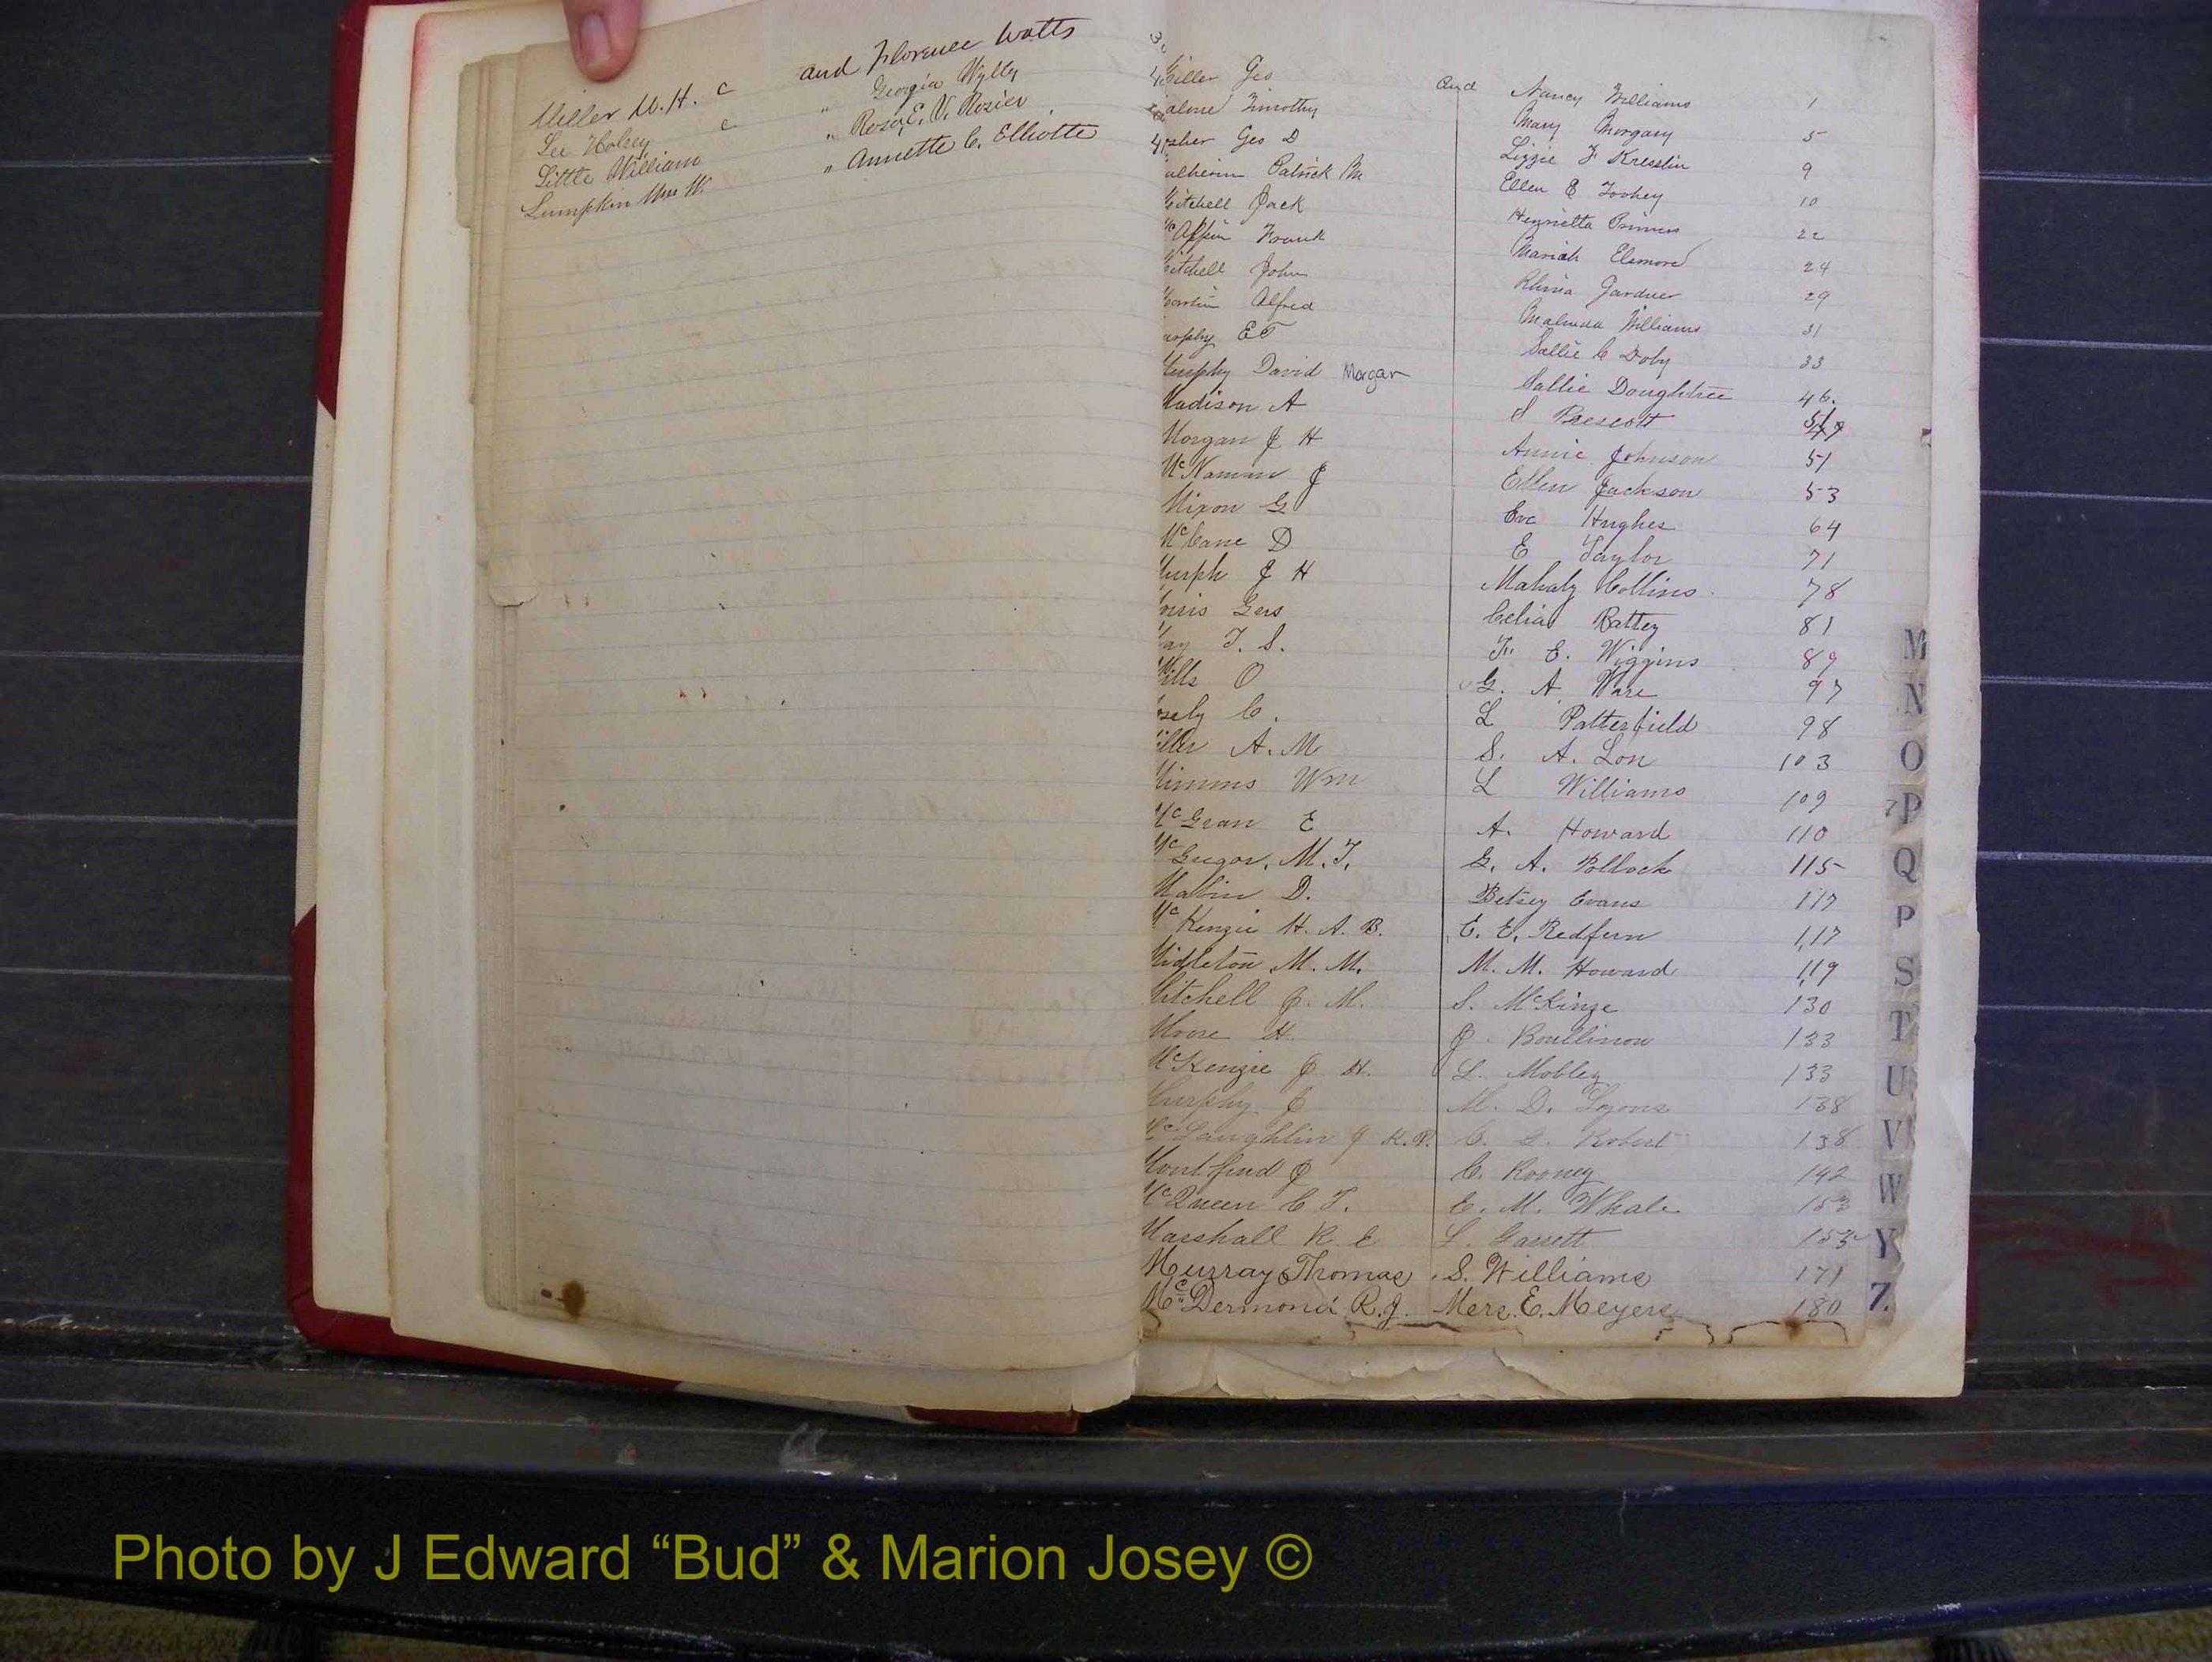 Miller W. H. c and Florence Watts
Lee Holsey c " Georgia Wylly
Little William " Rosa E. V. Rosier
Lumpkin Wm W. " Annette C. Elliotte
iller Geo and Nancy Williams 1
alone Timothy Mary Morgany 5
osher Geo D Lizzie F Kresslin 9
ulherin Patrick M Ellen E Toohey 10
Mitchell Jack Henrietta Primus 22
Frank Mariah Elsmore 24
itchell John Rhina Gardner 29
Martin Alfred Malinda Williams 31
urphy E T Sallie C Doby 33
Murphy David Morgan Sallie Doughtree 46.
Madison A S Prescott
Morgan J H Annie Johnson 51
McNaman J Ellen Jackson 53
Mixon G Eve Hughes 64
McCane D E Taylor 71
Murph J H Mahaly Collins 78
orris Geis Celia Battey 81
ay T. S. F. E. Wiggins 89
Mills O G. A Ware 97
osely C. L Patterfield 98
iller A. M S. A. Lon 103
Mimms Wm L Williams 109
McGran E A. Howard 110
McGregor, M. T. G. A. Pollock 115
Mabin D. Betsey Evans 117
McKenzie H. A. B. E. E. Redfern 117
Midleton M. M. M. M. Howard 119
Mitchell J. M. S. McKinze 130
Moore H. J. Boullinou 133
McKenzie J H. L. Mobley 133
Murphy J M. D. Lyons 138
McLaughlin J K. R. C. G. Robert 138
Montfind J C. Rooney 142
McQueen C T. E. M. Whale 153
Marshall R. E L. Garrett
Murray Thomas S. Williams 171
McDermond R. J. Mers. E. Meyers 180
M
N
O
P
Q
P
S
T
U
V
W
Y
Z.
Photo by J Edward “Bud” & Marion Josey ©